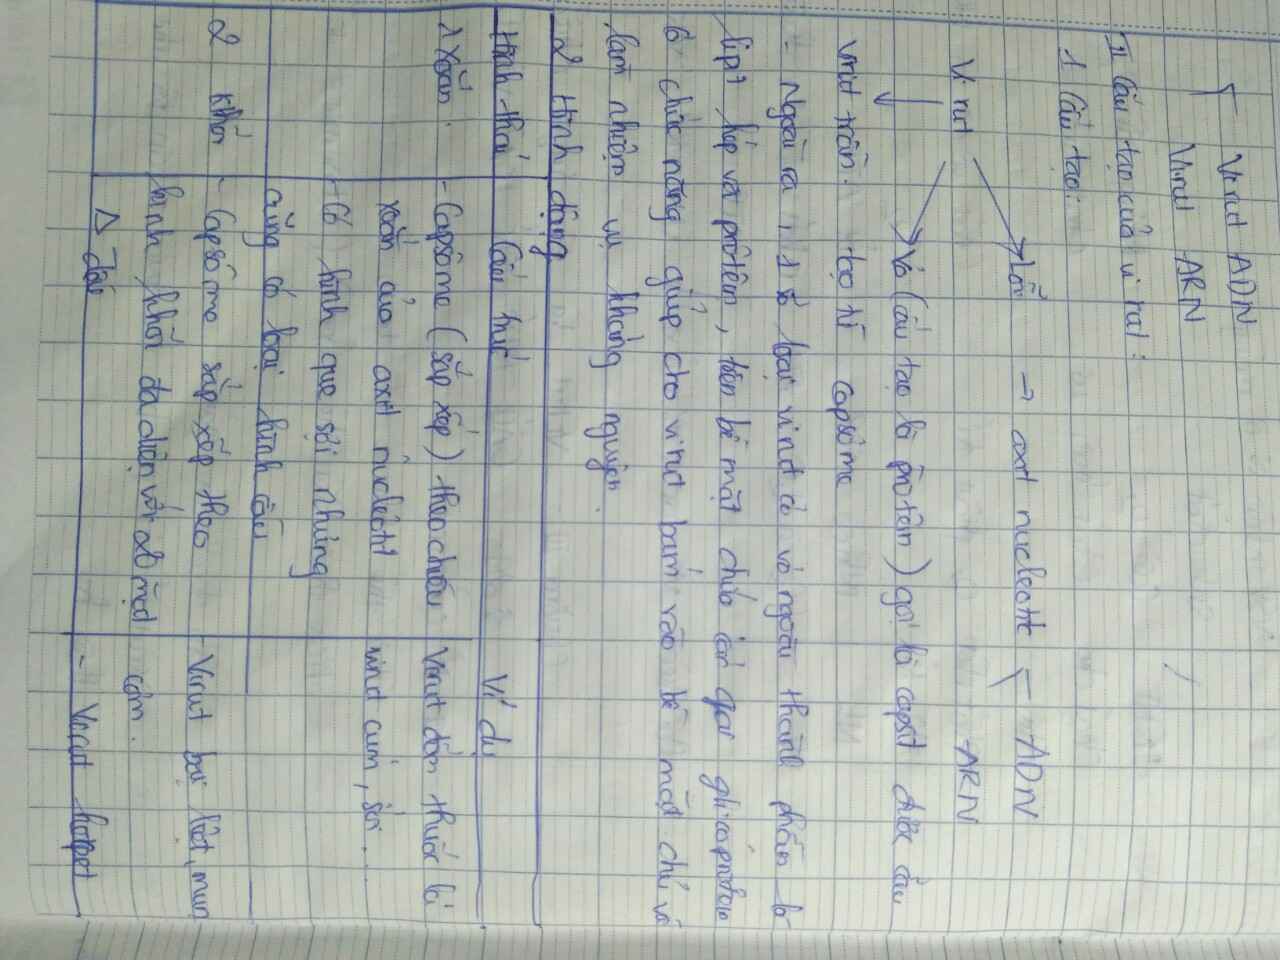 Virut ADN
Virut ARN
II Cấu tạo của virut:
1 Cấu tạo:
Lõi → axit nucleotit - ADN
- ARN
Virut
Vỏ (cấu tạo là prôtêin) gọi là capsit được cấu
virut trần. tạo từ capsôme
- Ngoài ra, 1 số loại virut có vỏ ngoài thành phần là
lipit kép và prôtêin, trên bề mặt chứa các gai glicôprôtêin
có chức năng giúp cho virut bám vào bề mặt chủ và
làm nhiệm vụ kháng nguyên.
2 Hình dạng
Hình thái Cấu trúc Ví dụ
1 Xoắn. - Capsôme (sắp xếp) theo chiều Virut đốm thuốc lá
xoắn của axit nuclêôtit virut cúm, sởi...
- Có hình que sợi nhưng
cũng có loại hình cầu
2 Khối - Capsôme sắp xếp theo - Virut bại liệt, mụn
hình khối đa diện với 20 mặt cơm.
Δ đều - Virut hecpet